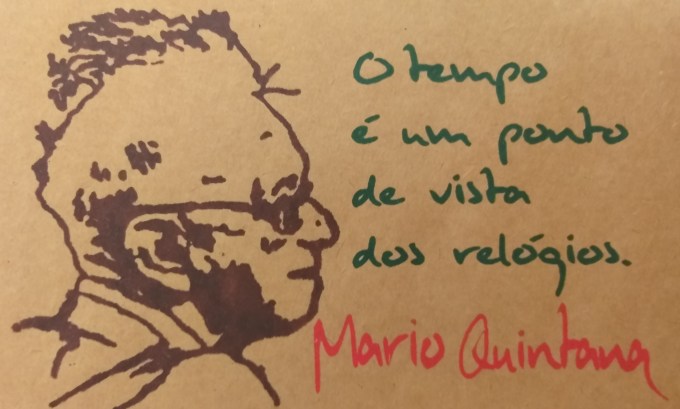 O tempo
é um ponto
de vista
dos relógios.
Mario Quintana